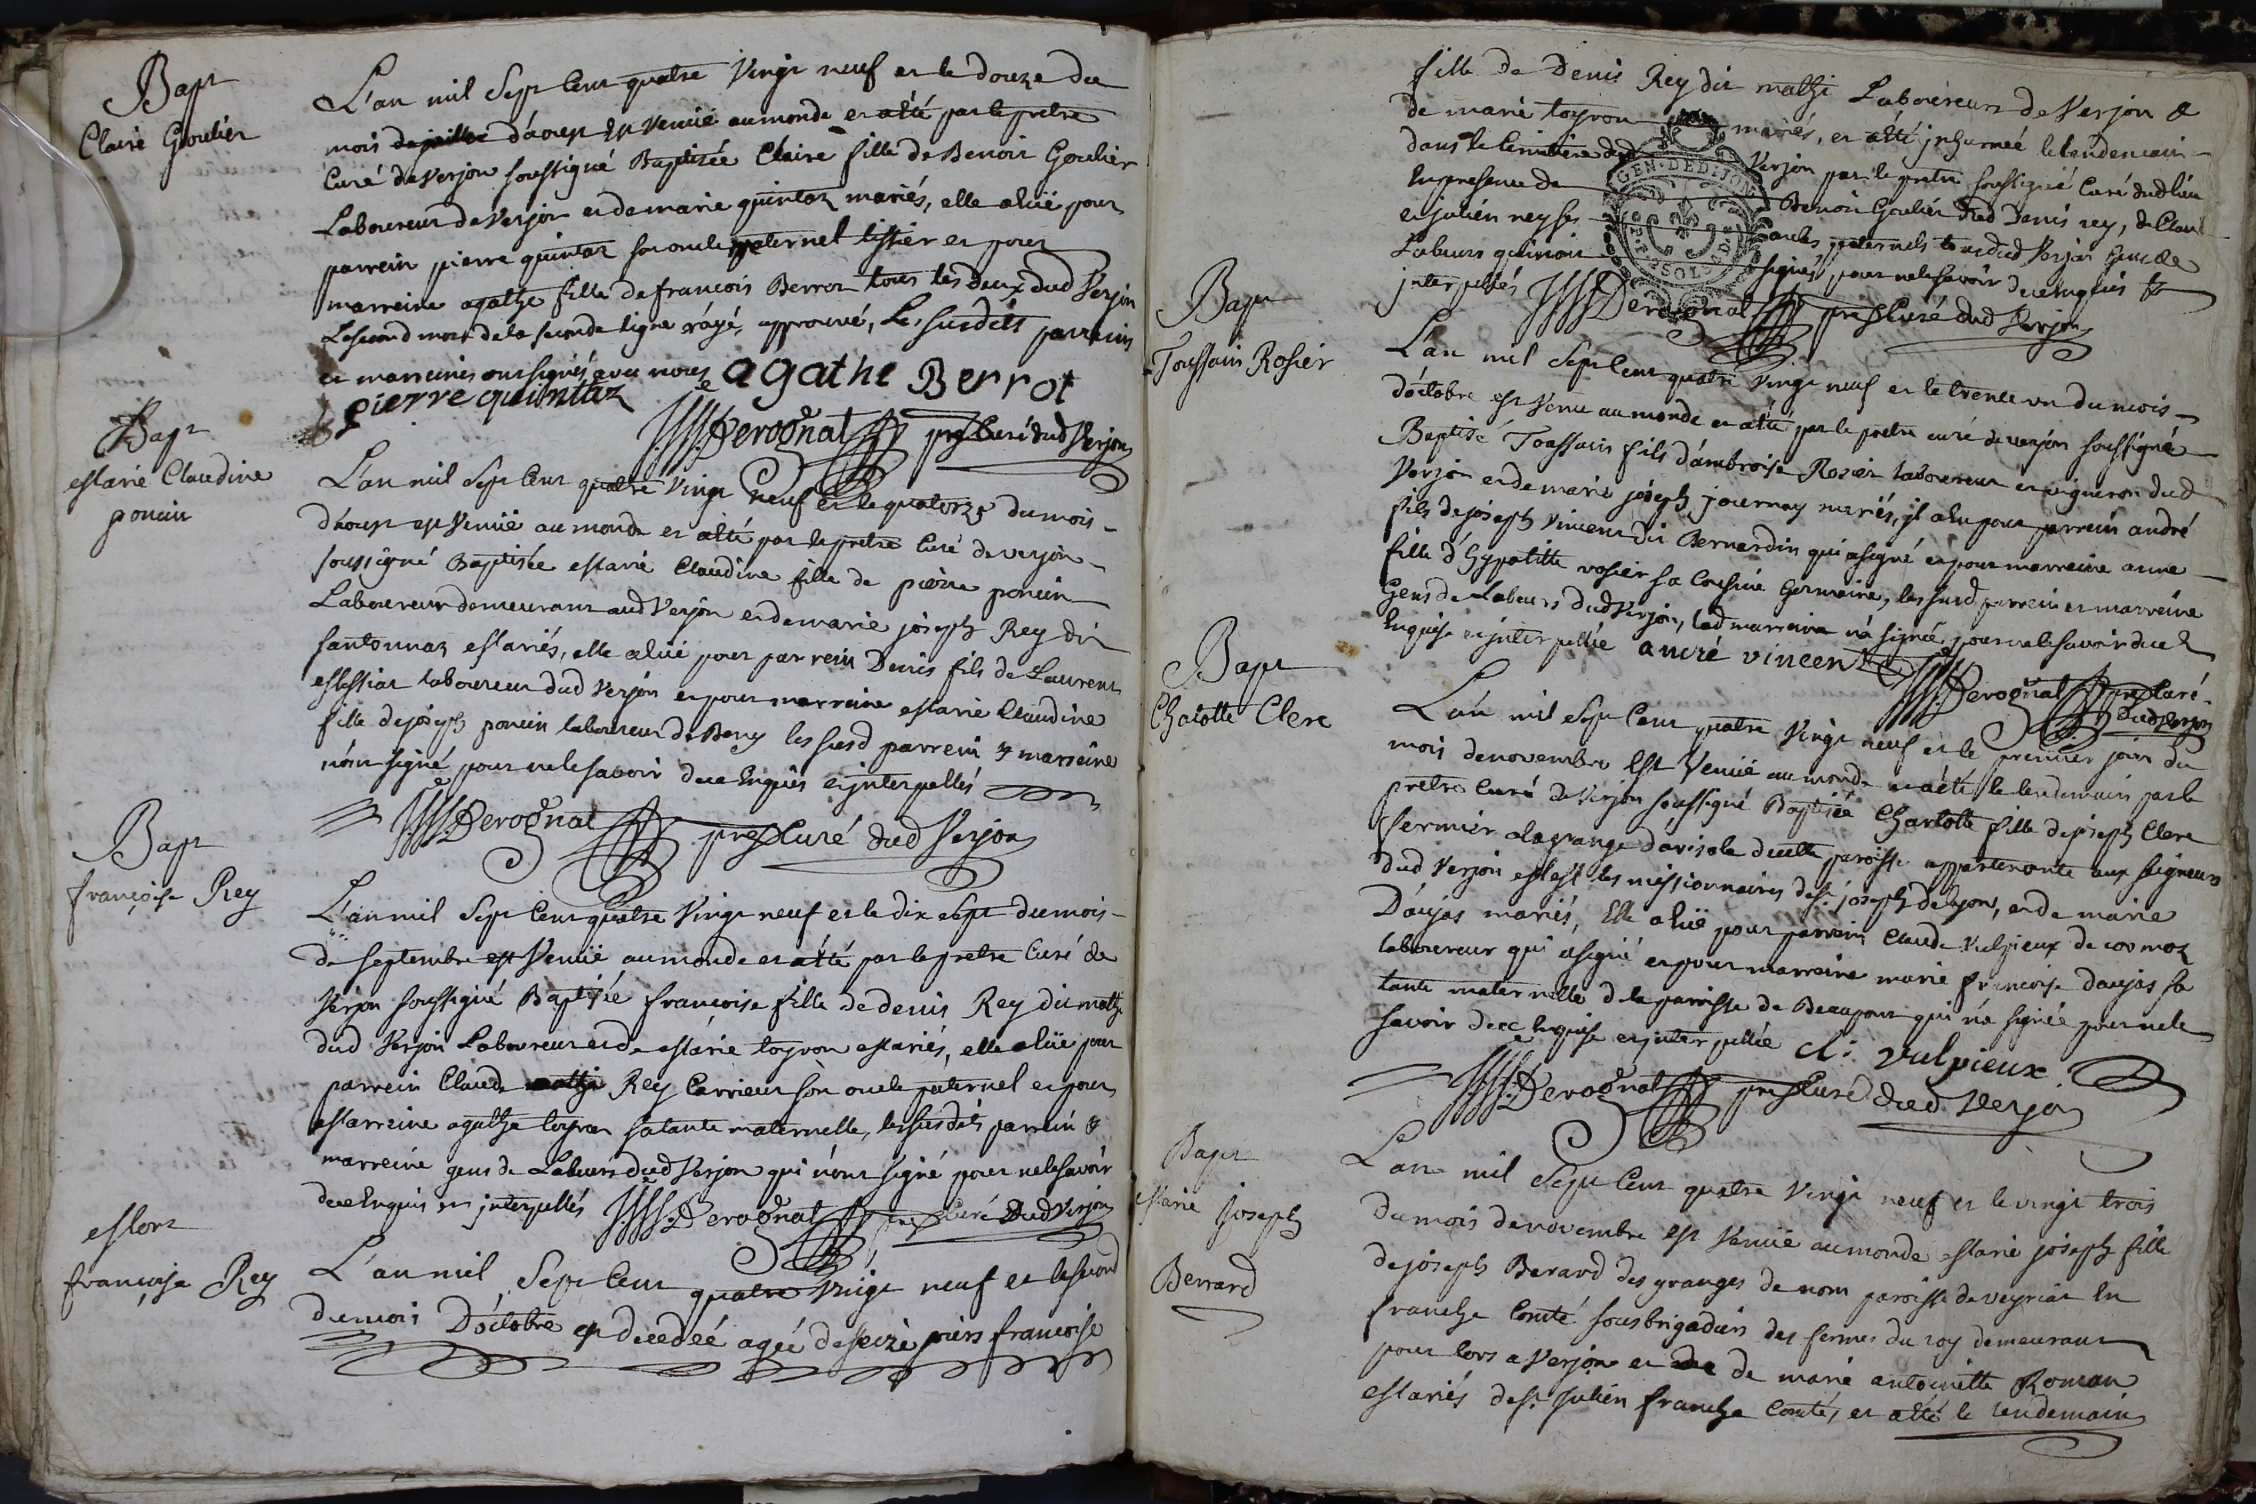 Bapt
Claire Goulier
L'an mil Sept Cent quatre Vingt neuf et le douze du
mois de juillet d'aoust Est Venüé au monde et a été par le pretre
Curé de Verjon soussigné Baptisée Claire fille de Benoit Goulier
Laboureur de Verjon et de marie quintaz mariés, elle a hüé pour
parrein pierre quintaz son oncle maternel tissier et pour
marreine agathe fille de francois Berrot tous les deux dud Verjon
Le second mot de la seconde ligne rayé, approuvé, Les susdits parrein
et marreines ont signés avec nous agathe Berrot
pierre quintaz
Derognat pretre Curé dud Verjon
Bapt
Marie Claudine
poncin
L'an mil Sept Cent quatre Vingt neuf et le quatorze du mois
d'aoust est Venüé au monde et a été par le pretre Curé de verjon
soussigné Baptisée Marie Claudine fille de pierre poncin
Laboureur demeurant aud Verjon et de marie joseph Rey dit
fantonnaz Mariés, elle a hüé pour parrein Denis fils de Laurent
Messiat laboureur dud Verjon et pour marreine Marie Claudine
fille de joseph poncin laboureur de Beny les susd parrein & marreine
n'ont signé pour ne le savoir de ce Enquis et jnterpellés
Derognat pretre Curé dud Verjon
Bapt
françoise Rey
L'an mil Sept Cent quatre Vingt neuf et le dix Sept du mois
de septembre est Venüé au monde et a été par le pretre Curé de
Verjon soussigné Baptisée francoise fille de denis Rey dit mathi
dud Verjon Laboureur et de Marie toyron Mariés, elle a hüé pour
parrein Claude mathi Rey Carrieur son oncle paternel et pour
Marreine agathe toyron sa tante maternelle, les susdits parrein &
marreine gens de Labeurs dud Verjon qui n'ont signé pour ne le savoir
de ce Enquis et jnterpellés Derognat pretre Curé Dud Verjon
Mort
francoise Rey
L'an mil Sept Cent quatre Vingt neuf et le second
du mois D'octobre est decedée agée de seize jours francoise
fille de Denis Rey dit mathi Laboureur de Verjon &
de marie toyron mariés, et a été jnhumée le lendemain
dans le Cimitiere dud Verjon par le pretre soussigné Curé dud lieu
En presence de Benoit Goulier dud Denis rey, de Claude
et julien rey ses oncles paternels tous dud Verjon Gens de
Labeurs qui n'ont signés pour ne le savoir de ce Enquis &
jnterpellés Derognat pretre Curé dud Verjon
GEN. DE DIJON
Bapt
Toussain Rosier
L'an mil Sept Cent quatre Vingt neuf et le trente un du mois
d'octobre est Venu au monde et a été par le pretre curé de verjon soussigné
Baptisé Toussain fils d'ambroise Rosier laboureur et vigneron dud
Verjon et de marie joseph journay mariés, jl a hu pour parrein andré
fils de joseph Vincent dit Bernardin qui a signé et pour marreine anne
fille d'hypolitte rosier sa Cousine Germaine, les susd parrein et marreine
Gens de Labeurs dud Verjon, lad marreine n'a signée pour ne le savoir de ce
Enquise et jnterpellée andré vincent
Derognat pretre Curé
dud Verjon
Bapt
Charlotte Clerc
L'an mil Sept Cent quatre Vingt neuf et le premier jour du
mois de novembre Est Venüé au monde et a été le lendemain par le
pretre Curé de Verjon soussigné Baptisée Charlotte fille de joseph Clerc
fermier a la grange d'arisole de cette paroisse appartenante aux seigneurs
dud Verjon Mes les missionnaires de St joseph de lyon, et de marie
Daujas mariés, Elle a hüé pour parrein Claude Vulpieux de cormoz
laboureur qui a signé et pour marreine marie francoise daujas sa
tante maternelle de la paroisse de Beaupont qui n'a signée pour ne le
savoir de ce Enquise et jnterpellée Cl: Vulpieux
Derognat pretre Curé dud Verjon
Bapt
Marie Joseph
Berrard
L'an mil Sept Cent quatre Vingt neuf et le vingt trois
du mois de novembre est Venüé au monde Marie joseph fille
de joseph Berard des granges de nom paroisse de veyriat En
franche Comté sous brigadier des fermes du roy demeurant
pour lors a Verjon et de de marie antoinette Roman
Mariés de St Julien franche Comté, et a été le lendemain